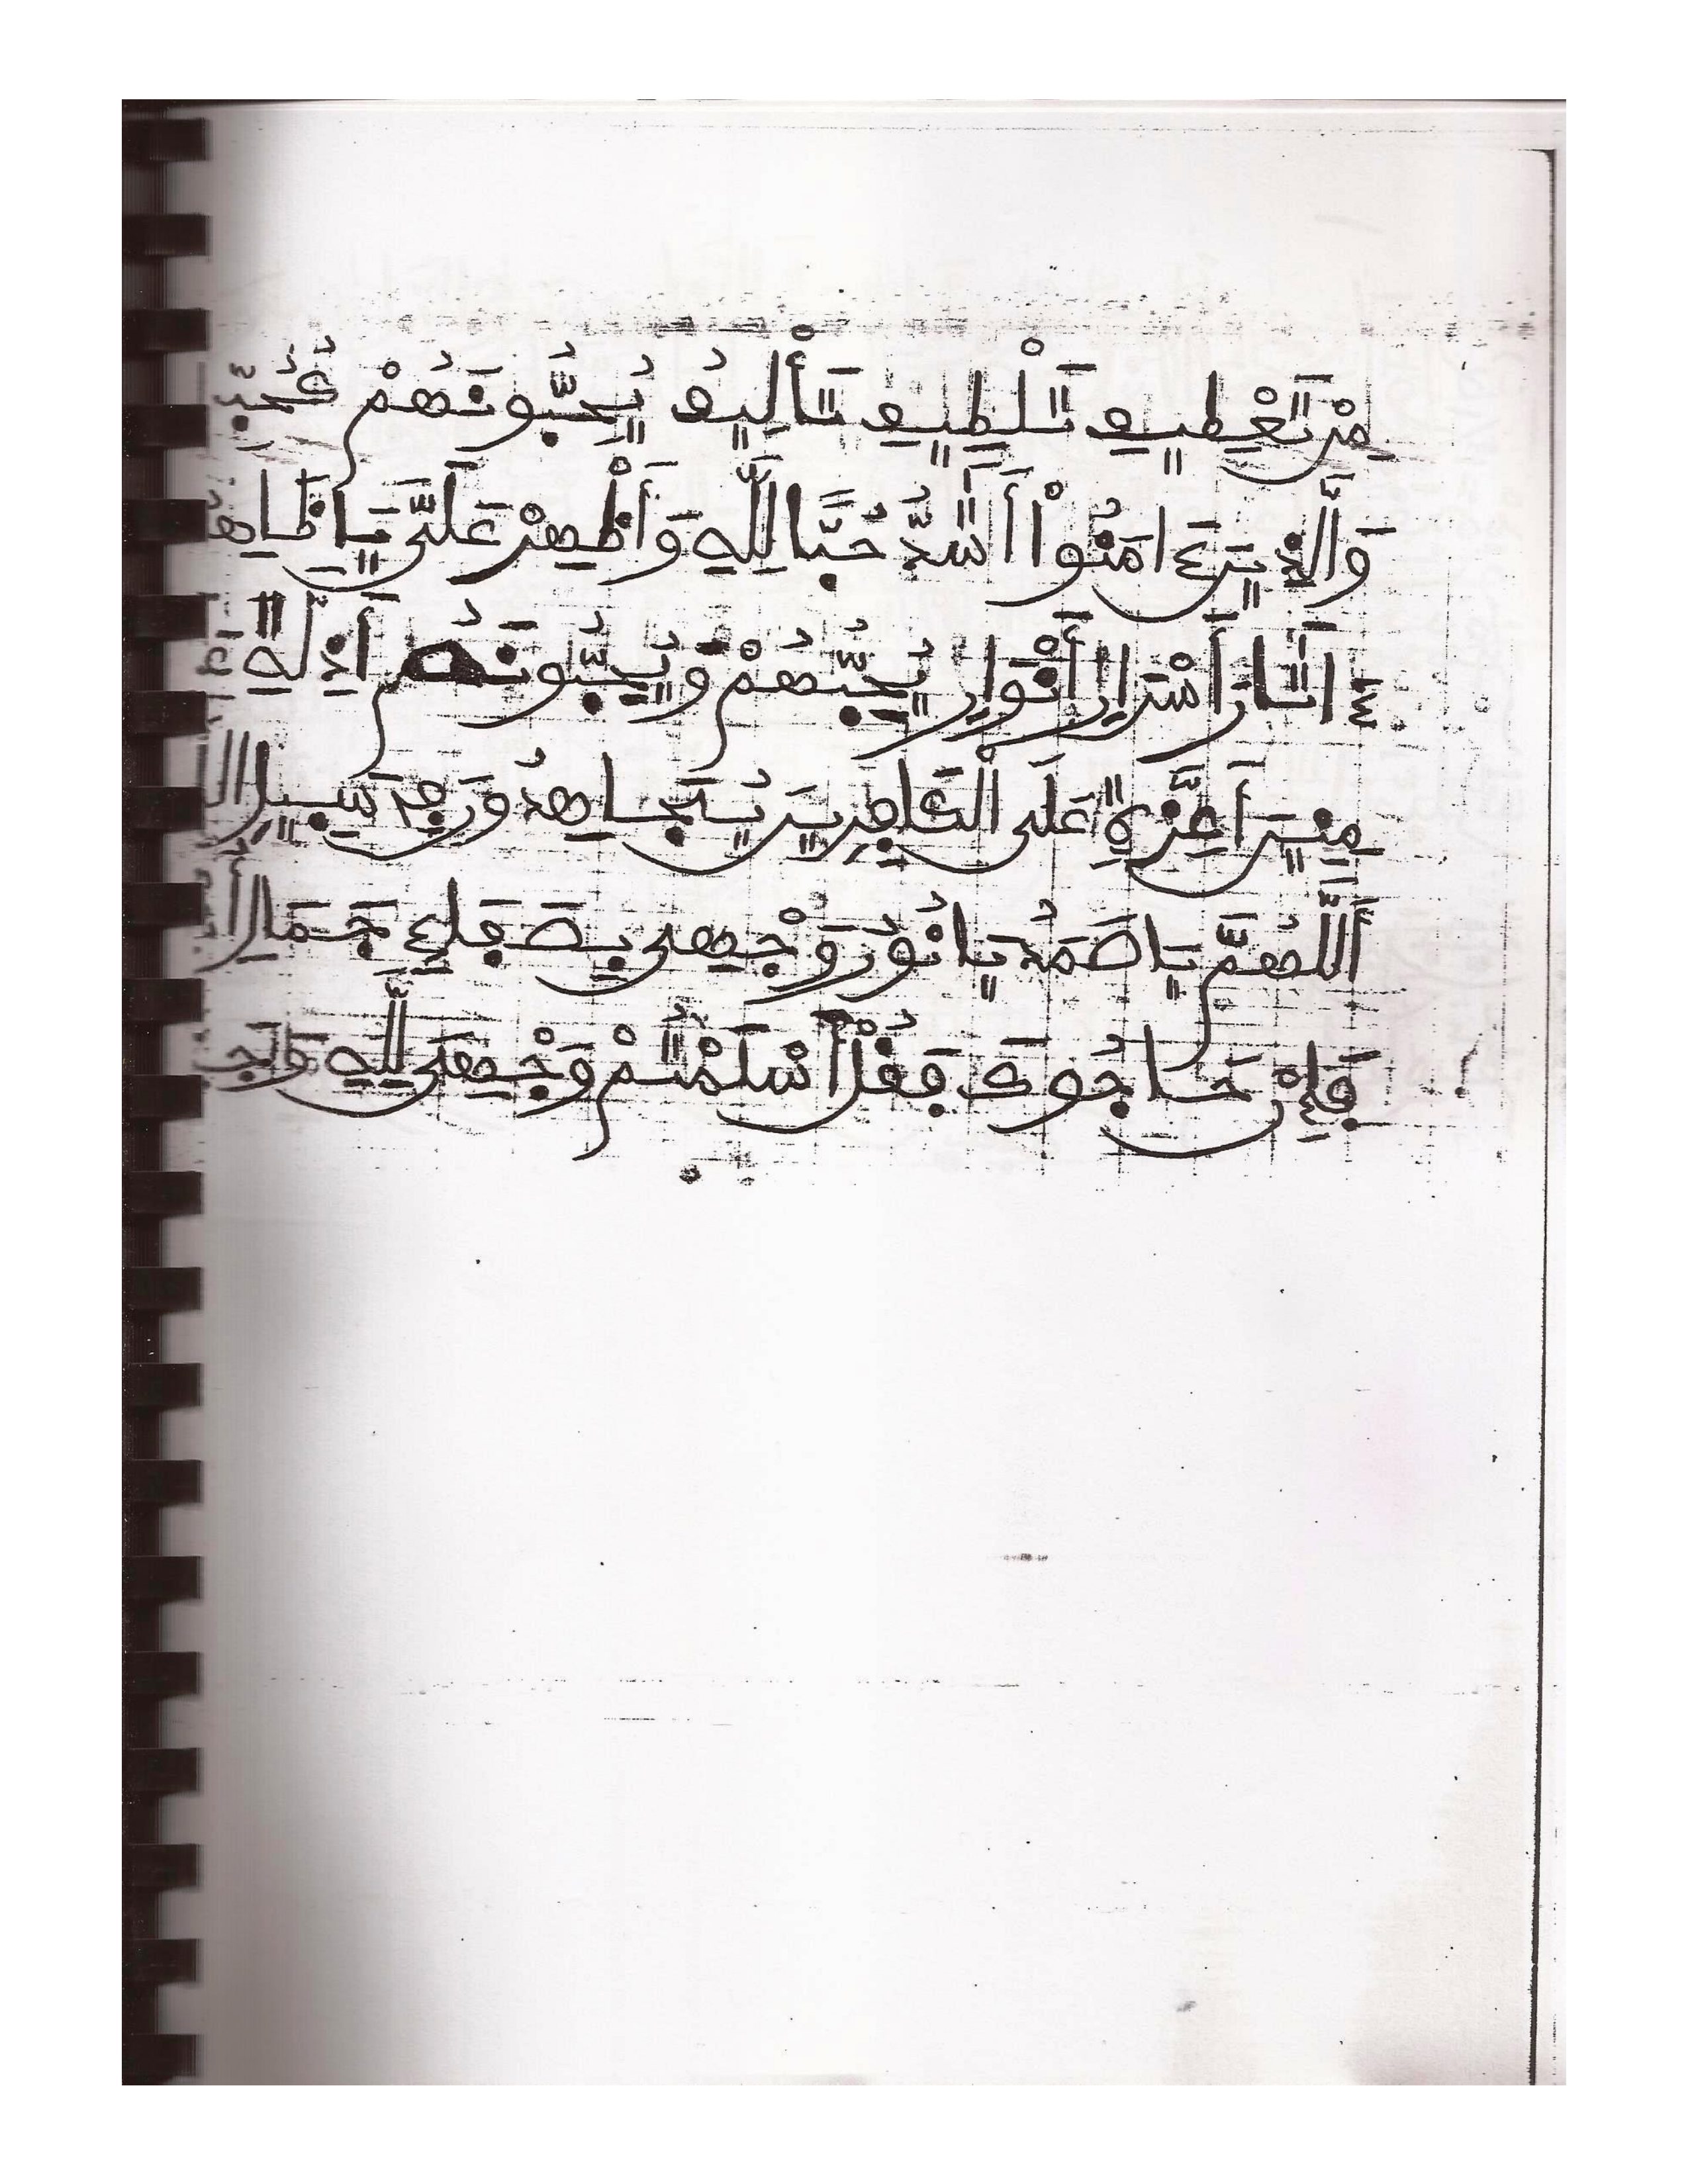 مِنْ تَعْطِيفِ تَلْطِيفِ تَأْلِيفُ يُحِبُّونَهُمْ كَحُبِّ
وَالَّذِينَ ءَامَنُواْ أَشَدُّ حُبًّا لِلَّهِ وَأَظْهِرْ عَلَىَّ يَا ظَاهِ
ءَاثَارَ أَسْرَارِ أَنْوَارِ يُحِبُّهُمْ وَيُحِبُّونَهُم أَذِلَّةٍ عَ
مِنِينَ أَعِزَّةٍ عَلَى الْكَافِرِينَ يُجَاهِدُونَ فِى سَبِيلِ ال
أَللَّهُمَّ يَا صَمَدُ يَا نُورُ وَجْهِى بِصَفَاءِ جَمَالِ أُ
فَإِنْ حَاجُّوكَ فَقُلْ أَسْلَمْتُمْ وَجْهِىَ لِلَّهِ